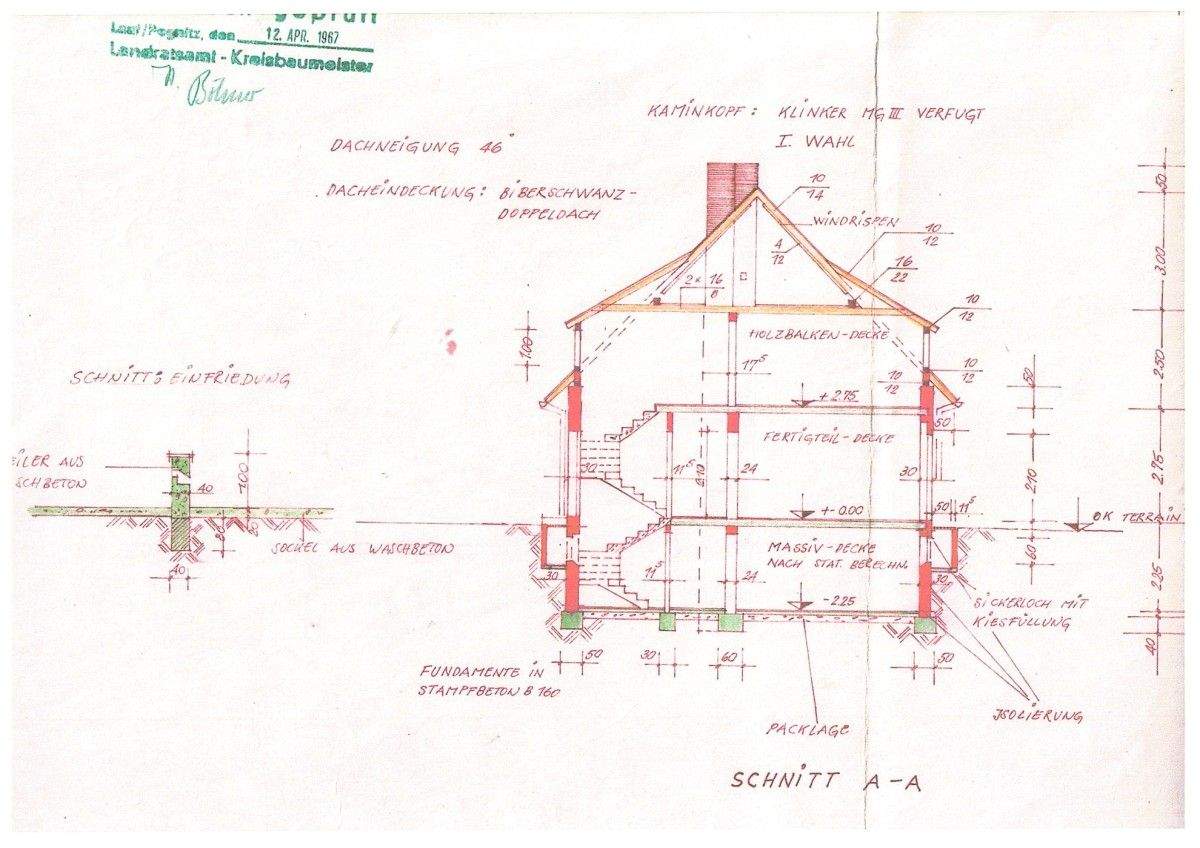 geprüft
Lauf/Pegnitz, den 12. APR. 1967
Landratsamt - Kreisbaumeister
KAMINKOPF: KLINKER MG III VERFUGT
I. WAHL
DACHNEIGUNG 46°
DACHEINDECKUNG: BIBERSCHWANZ-
DOPPELDACH
10/14
WINDRISPEN
10/12
4/12
16/22
2 x 16/8
10/12
50
3.00
HOLZBALKEN-DECKE
1.00
17⁵
10/12
10/12
50
2.50
SCHNITT: EINFRIEDUNG
+ 2.75
50
FERTIGTEIL-DECKE
EILER AUS
SCHBETON
40
1.00
30
11⁵
2.10
24
30
2.10
2.75
+- 0.00
50
11⁵
OK TERRAIN
80
SOCKEL AUS WASCHBETON
40
MASSIV-DECKE
NACH STAT. BERECHN.
60
30
11⁵
24
30
2.25
- 2.25
SICKERLOCH MIT
KIESFÜLLUNG
40
50
30
60
50
FUNDAMENTE IN
STAMPFBETON B 160
ISOLIERUNG
PACKLAGE
SCHNITT A-A